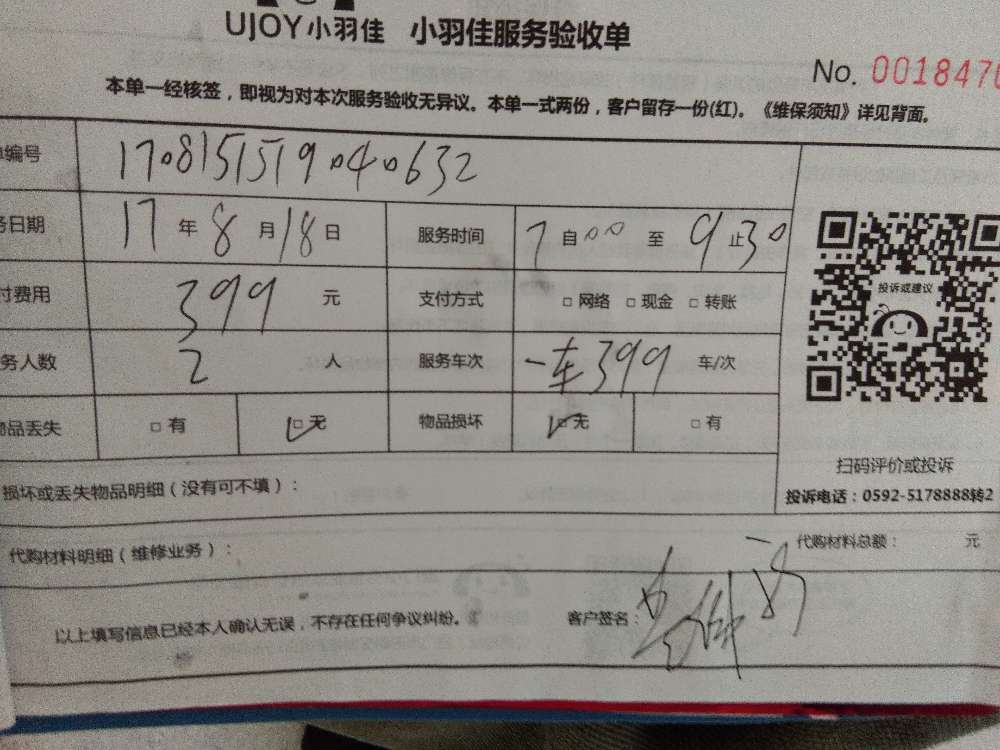 UJOY小羽佳 小羽佳服务验收单
No. 0018470
本单一经核签，即视为对本次服务验收无异议。本单一式两份，客户留存一份(红)。《维保须知》详见背面。
编号 1708151519040632
日期 17 年 8 月 18 日 服务时间 7 自 00 至 9 止 30
付费用 399 元 支付方式 □ 网络 □ 现金 □ 转账
务人数 2 人 服务车次 一车399 车/次
品丢失 □ 有 □ 无 物品损坏 □ 无 □ 有
投诉或建议
扫码评价或投诉
投诉电话：0592-5178888转2
损坏或丢失物品明细（没有可不填）：
代购材料明细（维修业务）： 代购材料总额： 元
以上填写信息已经本人确认无误，不存在任何争议纠纷。 客户签名：